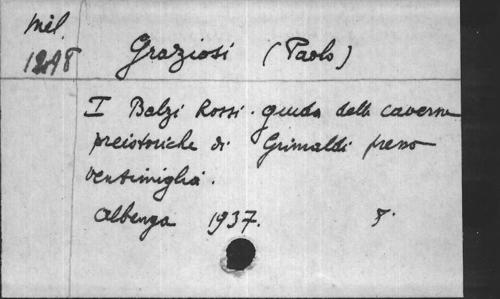 Mél.
Graziosi (Paolo)
I Balzi Rossi. guida delle caverne
preistoriche di Grimaldi presso
ventimiglia.
Albenga 1937. 8.